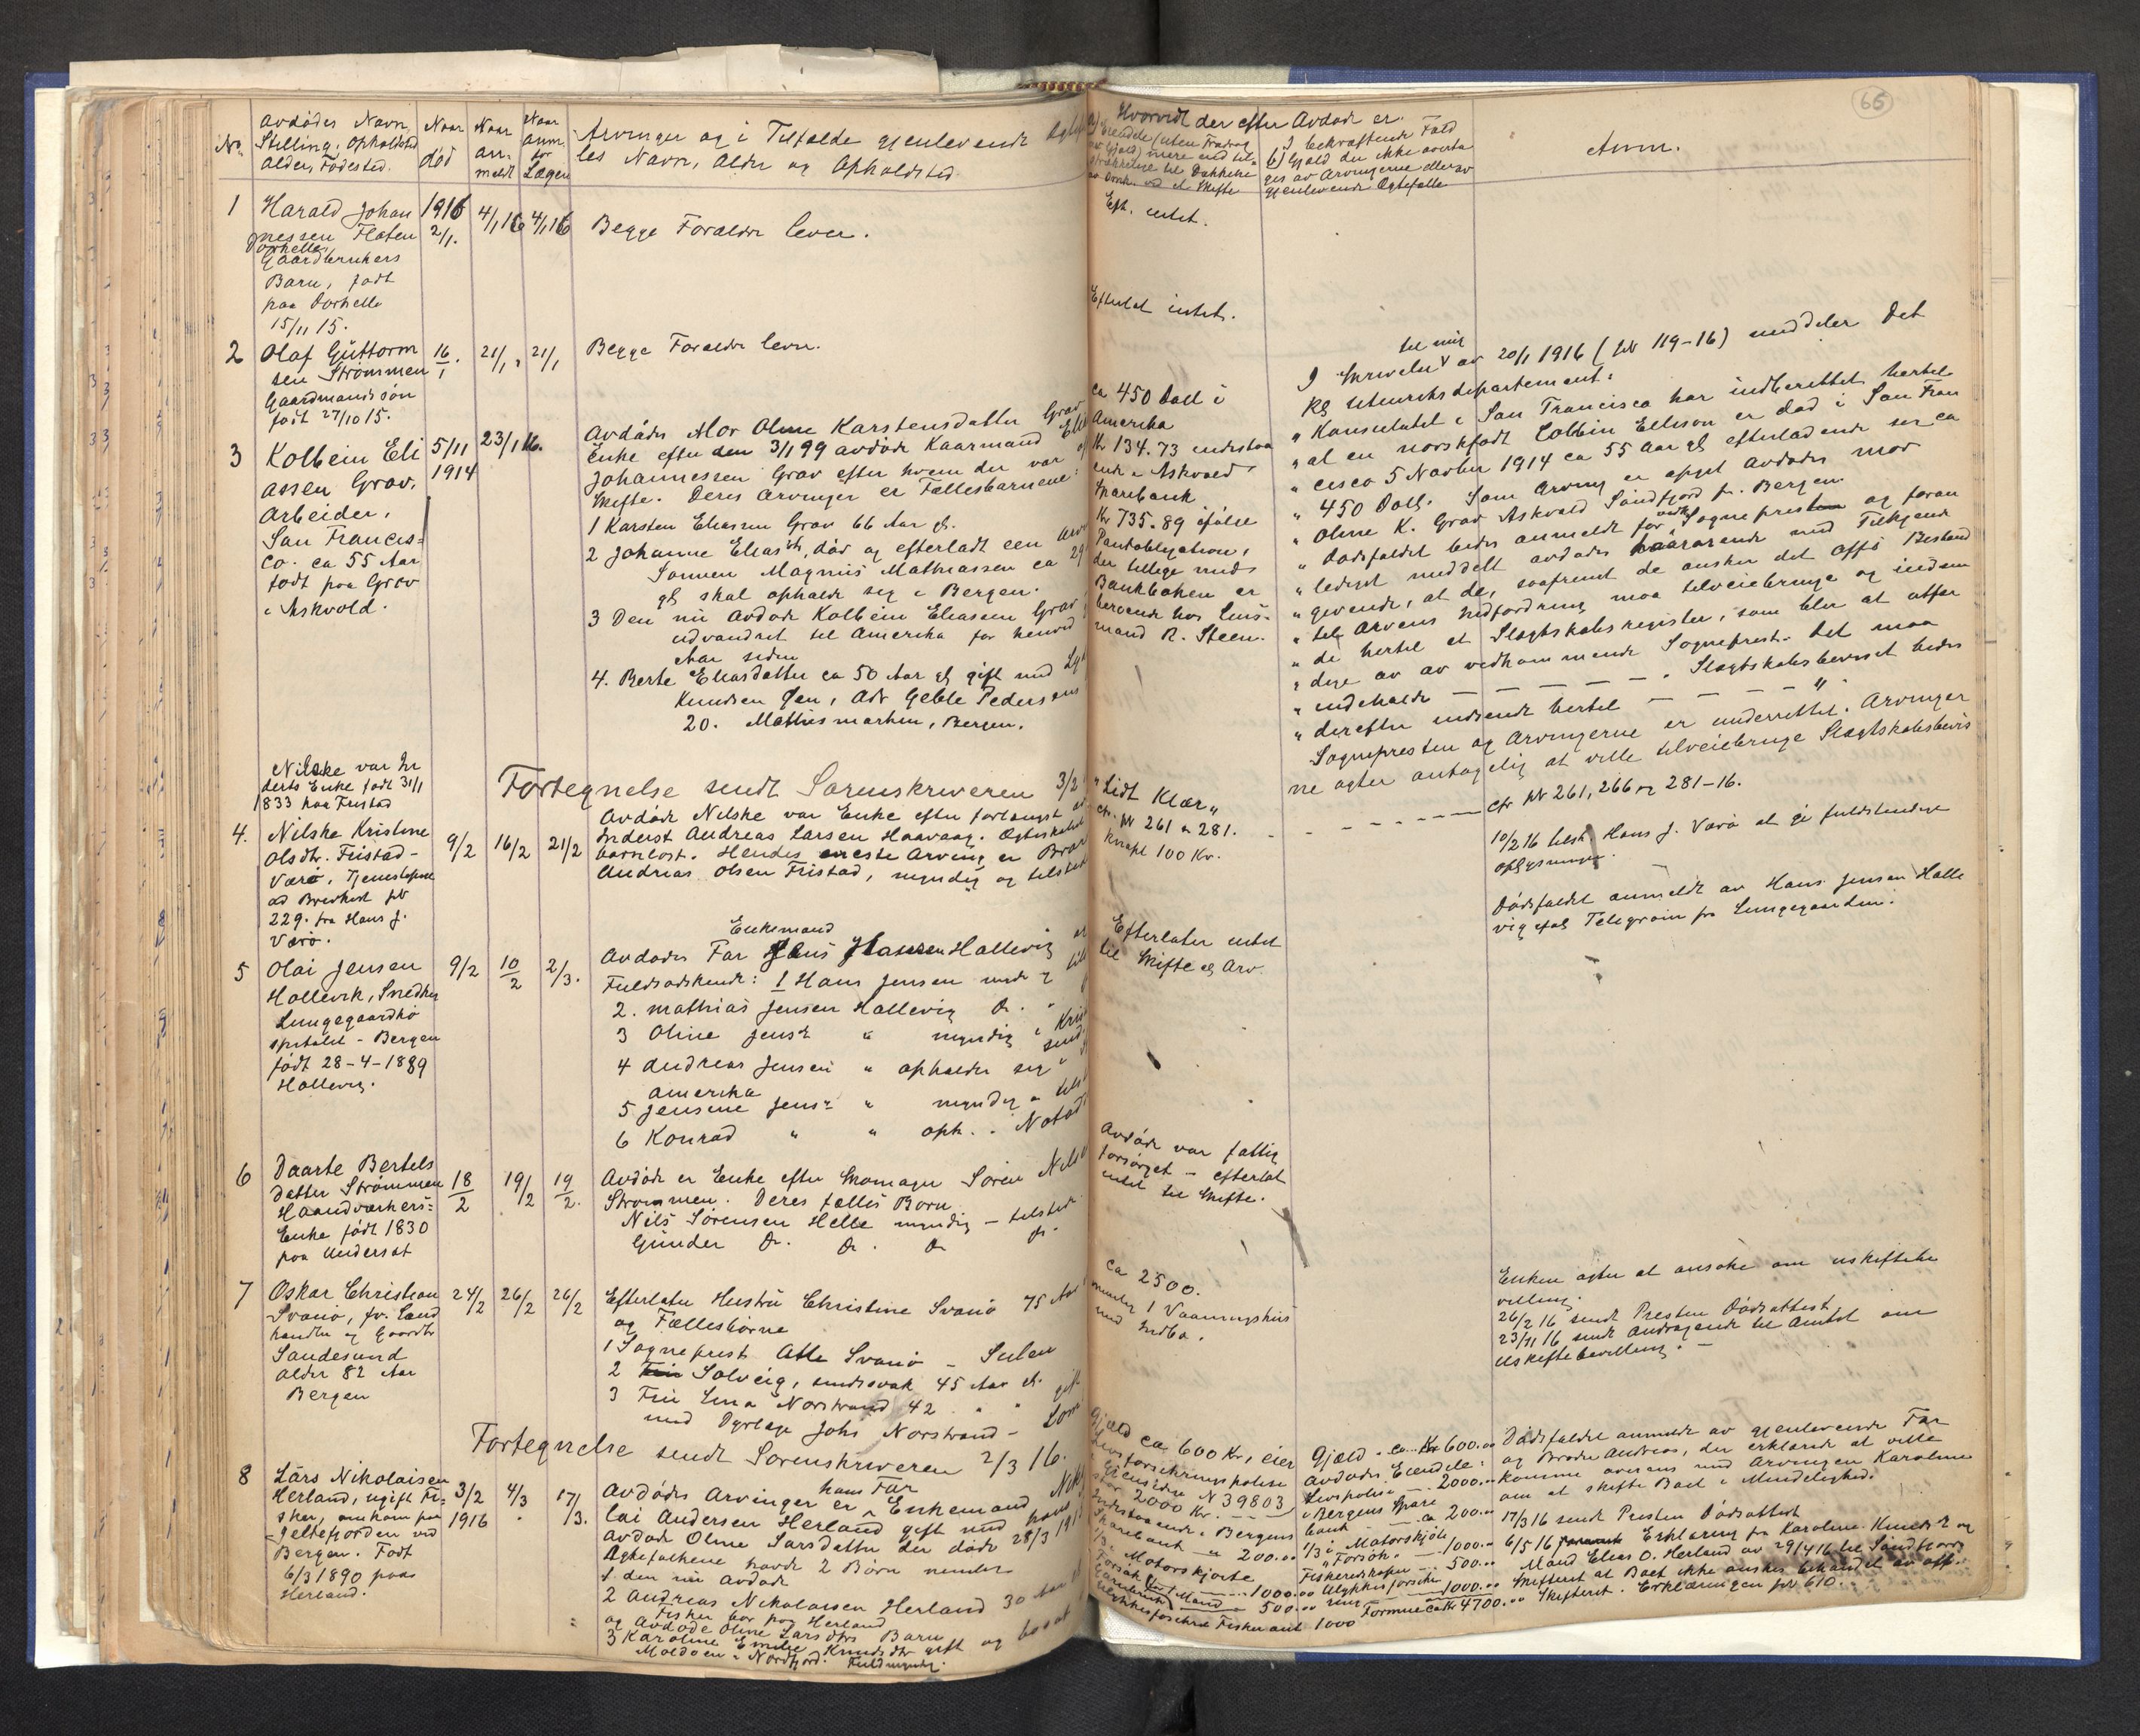 66
No
Avdødes Navn,
Stilling, Opholdsted
Alder, Fødested.
Naar
død
Naar
an-
meldt
Naar
anm.
for
Lagen
Arvinger og i Tilfælde gjenlevende Ægtefæl
les Navn, Alder og Opholdsted
Hvorvidt der efter Avdøde er.
a) Eiendele (uten Fradrag
av Gjæld) mere end til-
strækkelig til Dækkelse
av Omk. ved et Skifte
I bekræftende Fald
b) Gjæld der ikke overta
ges av Arvingerne eller av
gjenlevende Ægtefælle
Anm.
1
Harald Johan
nessen Flaten
Dorhella,
Gaardbrukers
Barn, født
paa Dorhella
15/11 15.
1916
2/1.
4/1 16
4/1 16
Begge Forældre lever.
Eft. intet.
2
Olaf Guttorm
sen Strømmen
Gaardmandssøn
født 27/10 15.
16/1.
21/1
21/1
Begge Forældre lever.
Efterlot intet.
3
Kolbein Eli
assen Grov.
Arbeider,
San Francis=
co. ca 55 Aar
født paa Grov
i Askvold.
5/11
1914
23/1 16.
Avdødes Mor Oline Karstensdatter Grov
Enke efter den 3/1 99 avdøde Kaarmand Elias
Johannessen Grov efter hvem der var
Skifte. Deres Arvinger er Fællesbarnene:
1 Karsten Eliassen Grov 66 Aar gl.
2 Johanne Eliasdtr, død og efterladt een
Sønnen Magnus Mathiassen ca 29
gl skal opholde sig i Bergen.
3 Den nu Avdøde Kolbein Eliassen Grov
udvandret til Amerika for henved
Aar siden
4. Berte Eliasdatter ca 50 Aar gl gift med
Knudsen Øen, Adr Geble Pedersens
20. Mathismarken, Bergen.
ca 450 Doll i
Amerika
Kr 134.73 indestaa
ende i Askvold
Sparebank
Kr 735.89 ifølge
Pantobligation,
der tillige med
Bankboken er
beroende hos Lens-
mand R. Steen.
til mig
I Skrivelse av 20/1 1916 (jr 119-16) meddeler Det
Kgl Utenriksdepartement:
" Konsulatet i San Francisco har indberettet hertil
" at en norskfødt Colbin Ellison er død i San Fran
" cisco 5 Novbr 1914 ca 55 Aar gl efterladende sig ca
" 450 Doll. Som Arving er opgit Avdødes mor
" Oline K. Grov Askvold Søndfjord pr. Bergen.
" Dødsfaldet bedes anmeldt for vedk Sogneprest og foran
" lediget meddelt avdødes paarørende med Tilkjende
" givende, at de, saafremt de ønsker det offs Bestand
" til Arvens Indfordring maa tilveiebringe og indsen
" de hertil et Slægtskabsregister, som blir at utfær
" dige av av vedkommende Sogneprest. Det maa
" indeholde — — — — — . Slægtskabsbeviset bedes
" derefter indsendt hertil — — — "
Sognepresten og Arvingerne er underrettet. Arvinger
ne agter antagelig at ville tilveiebringe Slægtskabsbevis
— — — — — cfr jr 261, 266 og 281-16.
Fortegnelse sendt Sorenskriveren 3/2
Nilske var In
dersts Enke født 31/1
1833 paa Fristad
4.
Nilske Kristine
Olsdtr. Fristad -
Værø, Tjenestepige
ad Brevkort jr
229. fra Hans J.
Værø.
9/2
16/2
21/2
Avdøde Nilske var Enke efter forlængst
Inderst Andreas Larsen Haavaag. Ægteskabet
barnløst. Hendes eneste Arving er Bror
Andreas Olsen Fristad, myndig og tilstede
"Lidt Klær"
cfr. jr 261 & 281.
Knapt 100 Kr.
10/2 16 tilsk. Hans J. Værø at gi fuldstændige
Oplysninger.
5
Olai Jensen
Hollevik, Snedker
Lungegaardho
spitalet - Bergen
født 28-4-1889
Hollevig.
9/2
10/2
2/3.
Enkemand
Avdødes Far Jens Hansen Hallevig
Fuldsødskende: 1 Hans Jensen
2. Mathias Jensen Hallevig Do. "
3 Oline Jensdtr " myndig i
4 Andreas Jensen " opholder sig i
Amerika
5 Jensine Jensdtr " myndig
6 Konrad " " oph. i
Efterlater intet
til Skifte og Arv.
Dødsfaldet anmeldt av Hans Jensen Halle
vig efter Telegram fra Lungegaarden.
6
Daarte Bertels
datter Strømmen
Haandværkers=
Enke født 1830
paa Andersøt
18/2
19/2
19/2.
Avdøde er Enke efter Skomager Søren Nils
Strømmen. Deres fælles Børn
Nils Sørensen Helle myndig - tilstede
Gunder Do. Do. Do do.
Avdøde var fattig
forsørget - efterlot
intet til Skifte.
7
Oskar Christian
Svanø, fv. Land
handler og Gaardbr
Sandesund
Alder 82 Aar
Bergen
24/2
26/2
26/2
Efterlater Hustru Christine Svanø 75 Aar
og Fællesbørne
1 Sogneprest Atle Svanø - Sulen
2 Solveig, sindssvak 45 Aar gl.
3 Fru Ema Norstrand 42 " " gift
med Dyrlæge Johs Norstrand -
ca 2500.
nemlig 1 Vaaningshus
med Indbo.
Enken agter at ansøke om uskiftebe
villing.
26/2 16 sendt Presten Dødsattest
23/11 16 sendt Andragende til Amtet om
Uskiftebevilling. -
Fortegnelse sendt Sorenskriveren 2/3 16.
8
Lars Nikolaisen
Herland, ugift Fi=
sker, omkom paa
Jeltefjorden ved
Bergen. Født
6/3 1890 paa
Herland.
3/2
1916
4/3
17/3.
hans Far
Avdødes Arvinger er Enkemand Niko
lai Andersen Herland gift med
Avdøde Oline Larsdatter der døde 28/3
Ægtefolkene havde 2 Børn nemlig
1 den nu Avdøde
2 Andreas Nikolaisen Herland 30 Aar
Fisker bor paa Herland
og Avdøde Oline Larsdtrs Barn
3 Karoline Emilie Knudsdtr gift og bosat
Moldøen i Nordfjord. Fuldmyndig.
Gjæld ca 600 Kr, eier
Livsforsikringspolise
N 39803
2000 Kr. - - -
indestaaende i Bergens
Sparebank " 200.00
1/3 i Motorskjøite
Forsøk 1000.00
500.00
Ulykkesforsikret Fisker ant 1000
Gjæld - ca Kr 600.00
Avdødes Eiendele:
Livspolise - 2000.00
i Bergens Spare
bank — ca 200.00
1/3 i Motorskjøite
"Forsøk" — 1000.00
Fiskeredskaper — 500.00
Ulykkesforsik
ring — 1000.00
Formue ca Kr 4700.00
Dødsfaldet anmeldt av gjenlevende Far
og Broder Andreas, der erklærede at ville
komme overens med Arvingen Karoline
om at skifte Boet i Mindelighed.
17/3 16 sendt Presten Dødsattest
6/5 16 Erklæring fra Karoline Knudsdtr og
Mand Elias O. Herland av 29/4 16 til Søndfjords
Skifteret at Boet ikke ønskes behandlet av off.
Skifteret. Erklæringen jr 610.